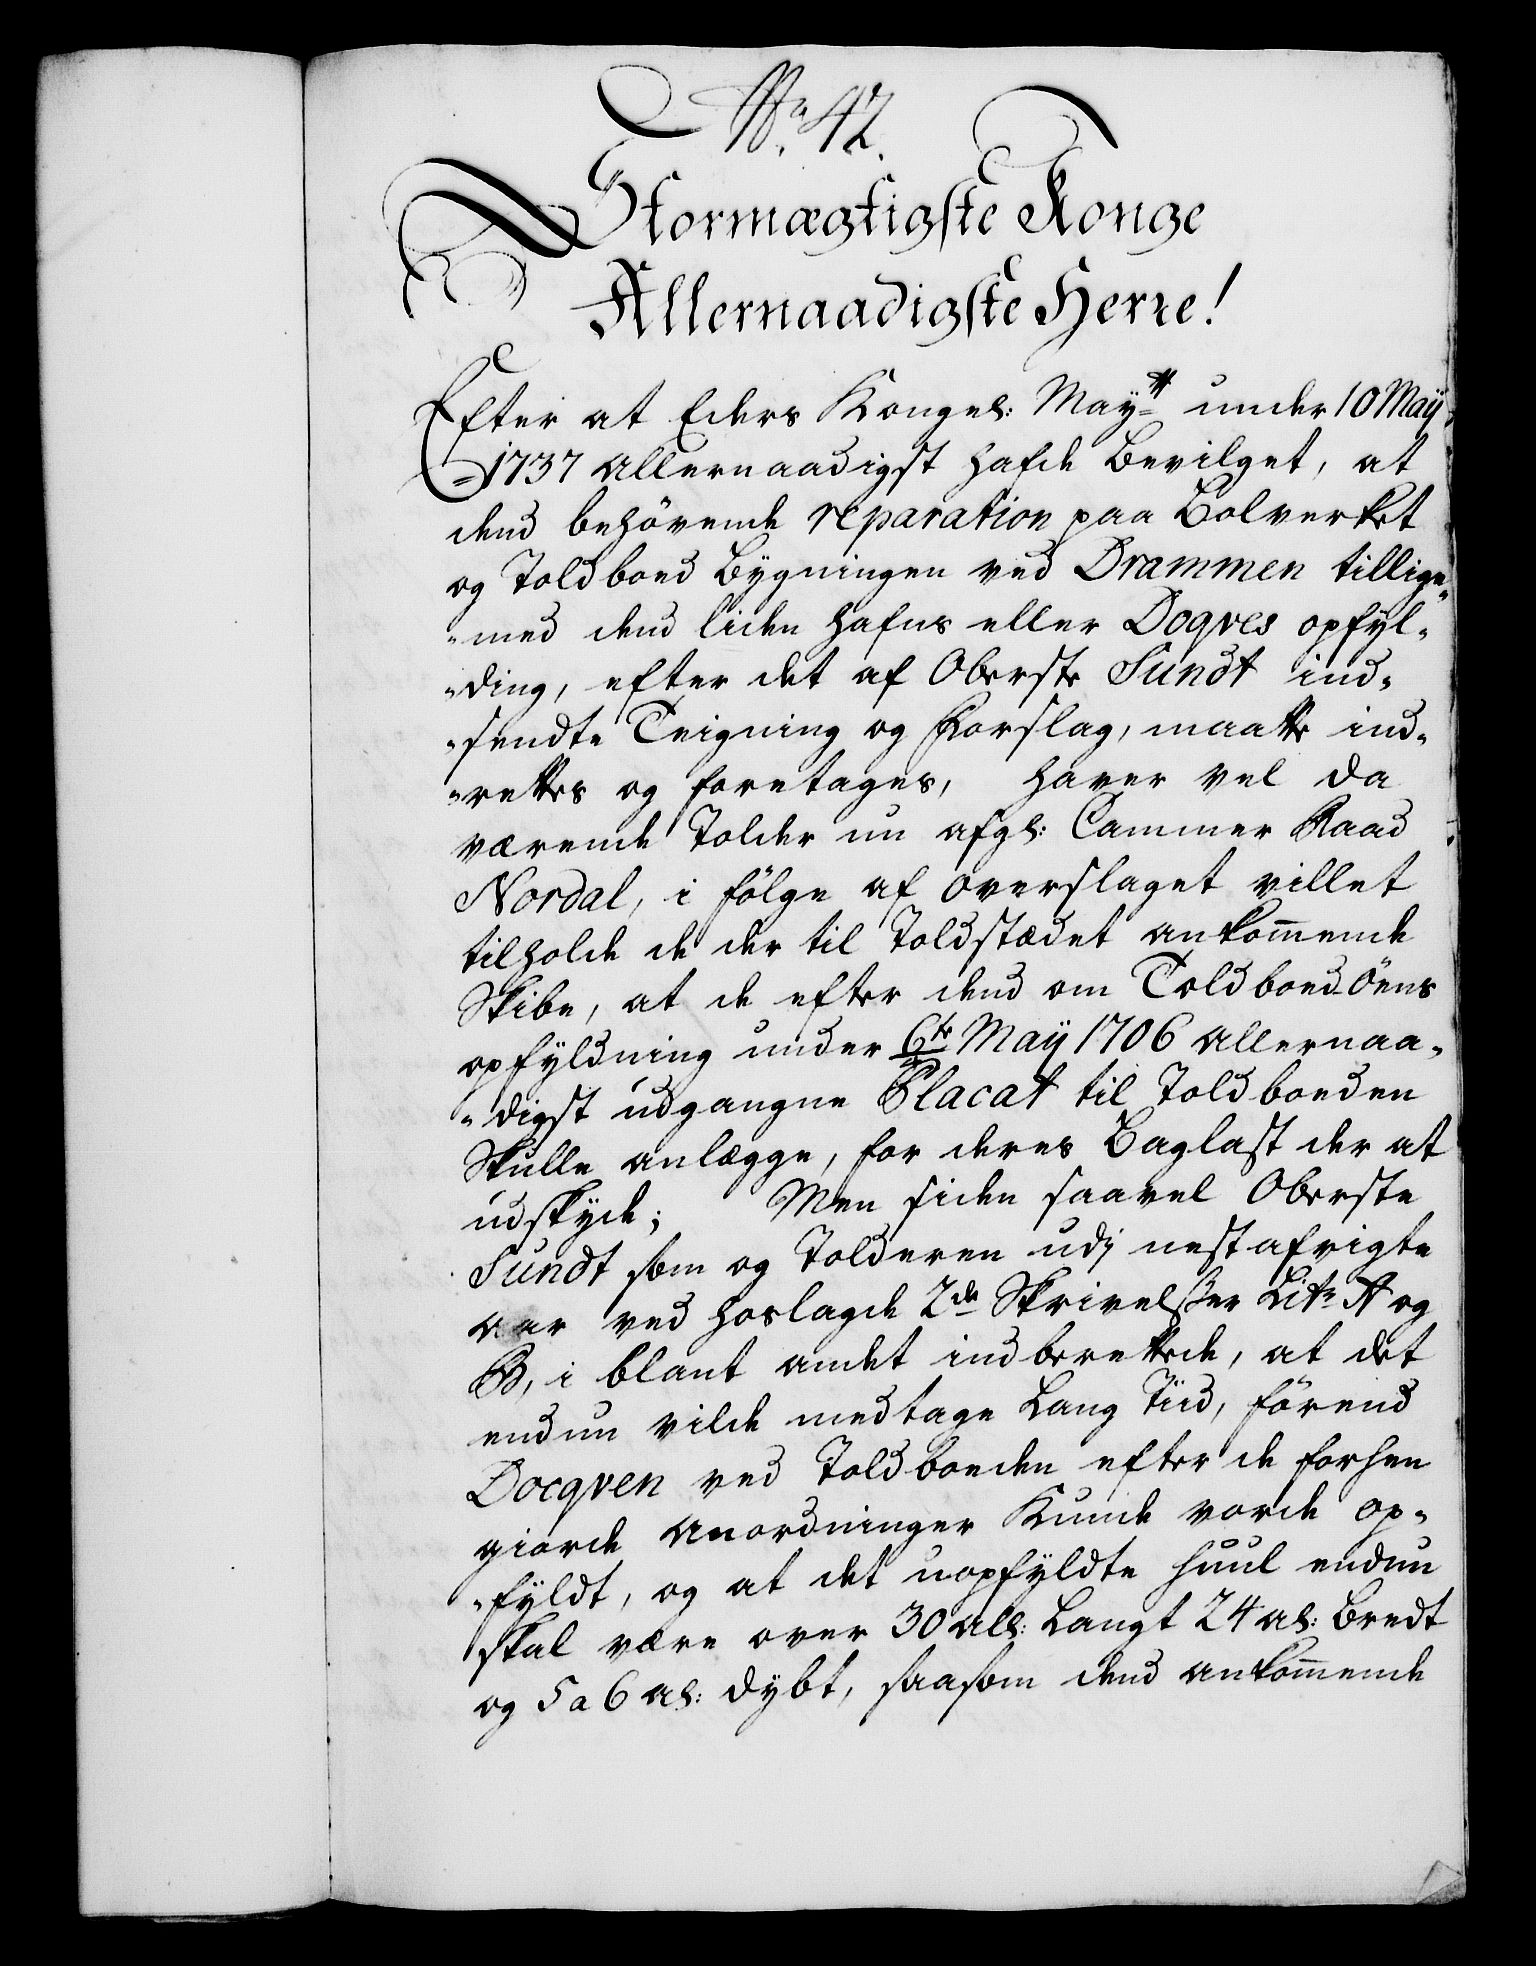 No. 42.
Stormægtigste Konge
Allernaadigste Herre!
Efter at Eders Kongel: Mayt under 10 Maÿ
1737 allernaadigst hafde bevilget, at
dend behövende reparation paa Bolverket
og Toldboed Bÿgningen ved Drammen tillige„
„med dend liden Hafns eller Doqves opfÿl„
„ding, efter det af Oberste Sundt ind„
„sendte Teigning og Forslag, maatte ind„
„rettes og foretages, haver vel da
værende Tolder nu afgl: Cammer Raad
Nordal, i fölge af overslaget villet
tilholde de der til Toldstædet ankom̄ende
Skibe, at de efter dend om Toldboed Öens
opfÿldning under 6te Maÿ 1706 allernaa„
„digst udgangne Placat til Toldboeden
Skulle anlægge, for deres Baglast der at
udskÿde; Men siden saavel Oberste
Sundt som og Tolderen udj nestafvigte
aar ved hoslagde 2de Skrivelsser Litr A og
B, i blant andet indberettede, at det
endnu vilde medtage Lang Tiid, förend
Docqven ved Toldboeden efter de forhen
giorde anordninger Kunde vorde op„
„fÿldt, og at det uopfÿldte Huul endnu
skal være over 30 all: Langt 24 al: bredt
og 5 a 6 al: dÿbt, saasom dend ankom̄ende